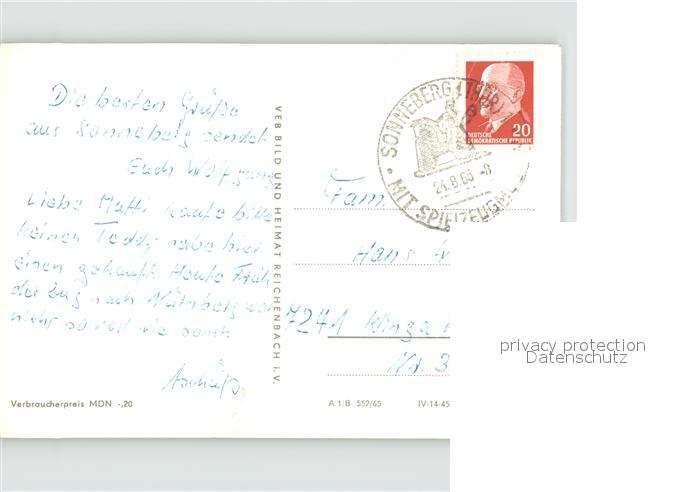 Die besten Grüße
aus Sonneberg sendet
Euch Wolfgang
Liebe Mutti kaufe bitte
keinen Teddy habe hier
einen gekauft. Heute Früh
der Zug nach Nürnberg war
nicht so voll wie sonst.
Tschüß
Verbraucherpreis MDN -,20
VEB BILD UND HEIMAT REICHENBACH i. V.
SONNEBERG (THÜR)
24.8.66 -8
MIT SPIELZEUG
20
DEUTSCHE
DEMOKRATISCHE REPUBLIK
Fam.
Hans
7241 Klinga
Nr. 3
A 1/B 552/65 IV-14-45
privacy protection
Datenschutz